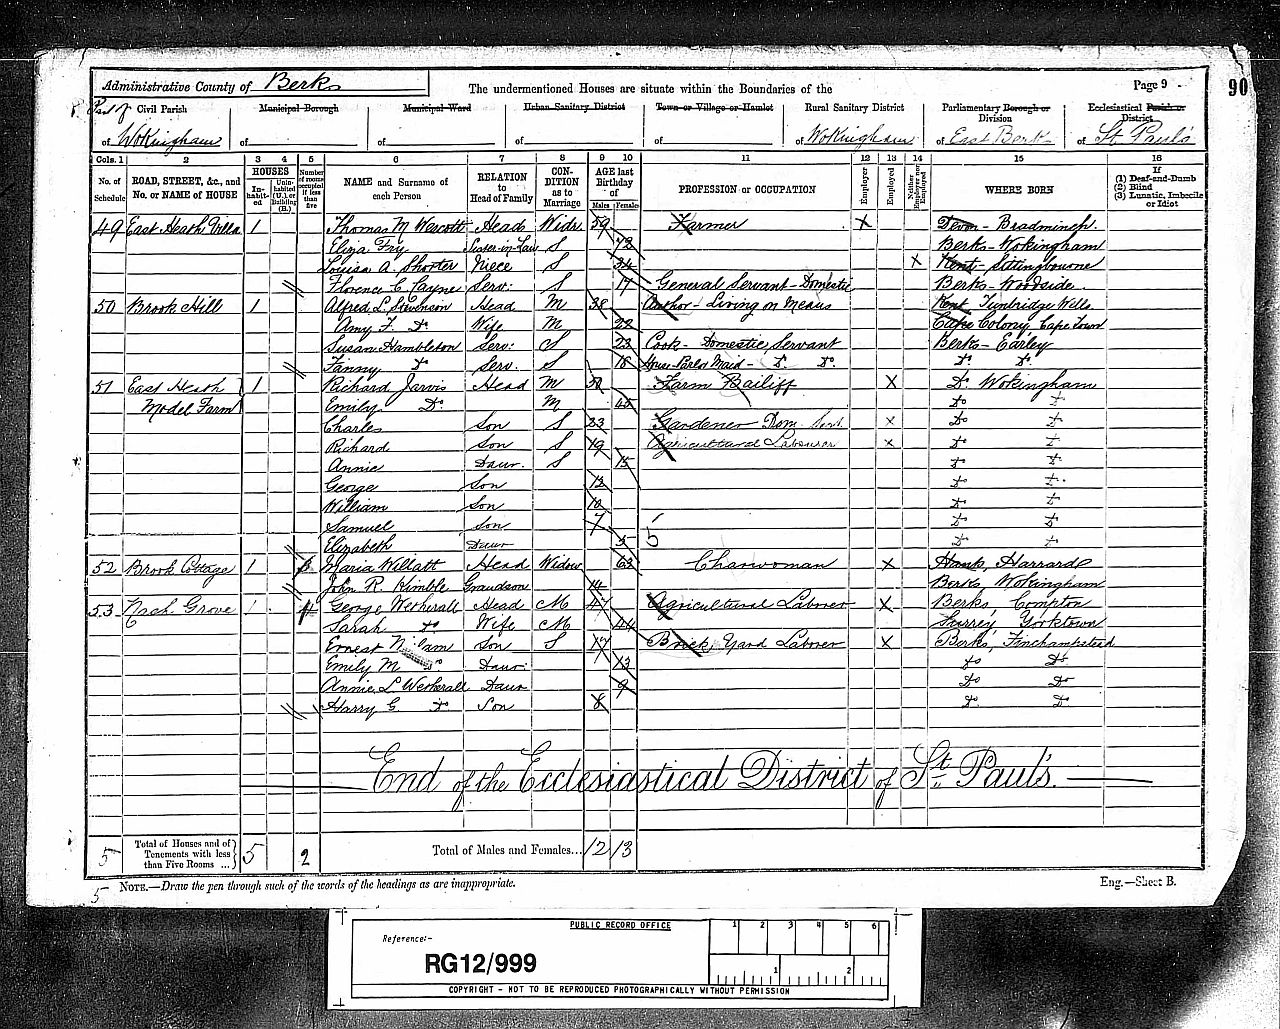 Administrative County of Berks
The undermentioned Houses are situate within the Boundaries of the
Page 9
90
Part of Civil Parish Municipal Borough Municipal Ward Urban Sanitary District Town or Village or Hamlet Rural Sanitary District Parliamentary Borough or Division Ecclesiastical Parish or District
of Wokingham of of of of of Wokingham of East Berks of St. Paul's
Cols. 1 2 3 4 5 6 7 8 9 10 11 12 13 14 15 16
No. of Schedule
ROAD, STREET, &c., and No. or NAME of HOUSE
HOUSES
Inhabited
Uninhabited (U.) or Building (B.)
Number of rooms occupied if less than five
NAME and Surname of each Person
RELATION to Head of Family
CONDITION as to Marriage
AGE last Birthday of
Males Females
PROFESSION or OCCUPATION
Employer
Employed
Neither Employer nor Employed
WHERE BORN
If (1) Deaf-and-Dumb (2) Blind (3) Lunatic, Imbecile or Idiot
49 East Heath Villa 1 Thomas M Wescott Head Widr. 59 Farmer X Devon - Bradninch
Eliza Fry Sister-in-Law S 72 Berks - Wokingham
Louisa A. Shorter Niece S 34 X Kent - Sittingbourne
Florence C. Payne Serv: S 17 General Servant - Domestic Berks - Woodside
50 Brook Hill 1 Alfred L. Stevenson Head M 38 Author - Living on Means Kent Tunbridge Wells
Amy F. Do Wife M 22 Cape Colony Cape Town
Susan Hambleton Serv: S 23 Cook - Domestic Servant Berks - Earley
Fanny Do Serv. S 18 House Parlor Maid - Do. Do. Do Do
51 East Heath 1 Richard Jarvis Head M Farm Bailiff X Do Wokingham
Model Farm Emily Do M 45 Do Do
Charles Son S 23 Gardener Dom. Servt. X Do Do
Richard Son S 19 Agricultural Labourer X Do Do
Annie Daur. S 15 Do Do
George Son 12 Do Do
William Son 10 Do Do
Samuel Son 7 Do Do
Elizabeth Daur 5 5 Do Do
52 Brook Cottage 1 3 Maria Willatt Head Widow 63 Charwoman X Hants, Harrards
John R. Kimble Grandson 14 Berks Wokingham
53 Nash Grove 1 4 George Wetherall Head M 47 Agricultural Laborer X Berks, Compton
Sarah Do Wife M 44 Surrey, Yorktown
Ernest Son S 17 Brick Yard Laborer X Berks, Finchampstead
Emily M Do Daur 13 Do Do
Annie L Wetherall Daur 9 Do Do
Harry C. Do Son 8 Do Do
End of the Ecclesiastical District of St. Paul's.
5 Total of Houses and of Tenements with less than Five Rooms ... 5 2 Total of Males and Females... 12 13
5 NOTE.—Draw the pen through such of the words of the headings as are inappropriate.
Eng.—Sheet B.
PUBLIC RECORD OFFICE 1 2 3 4 5 6
Reference:-
RG12/999
1 2
COPYRIGHT - NOT TO BE REPRODUCED PHOTOGRAPHICALLY WITHOUT PERMISSION